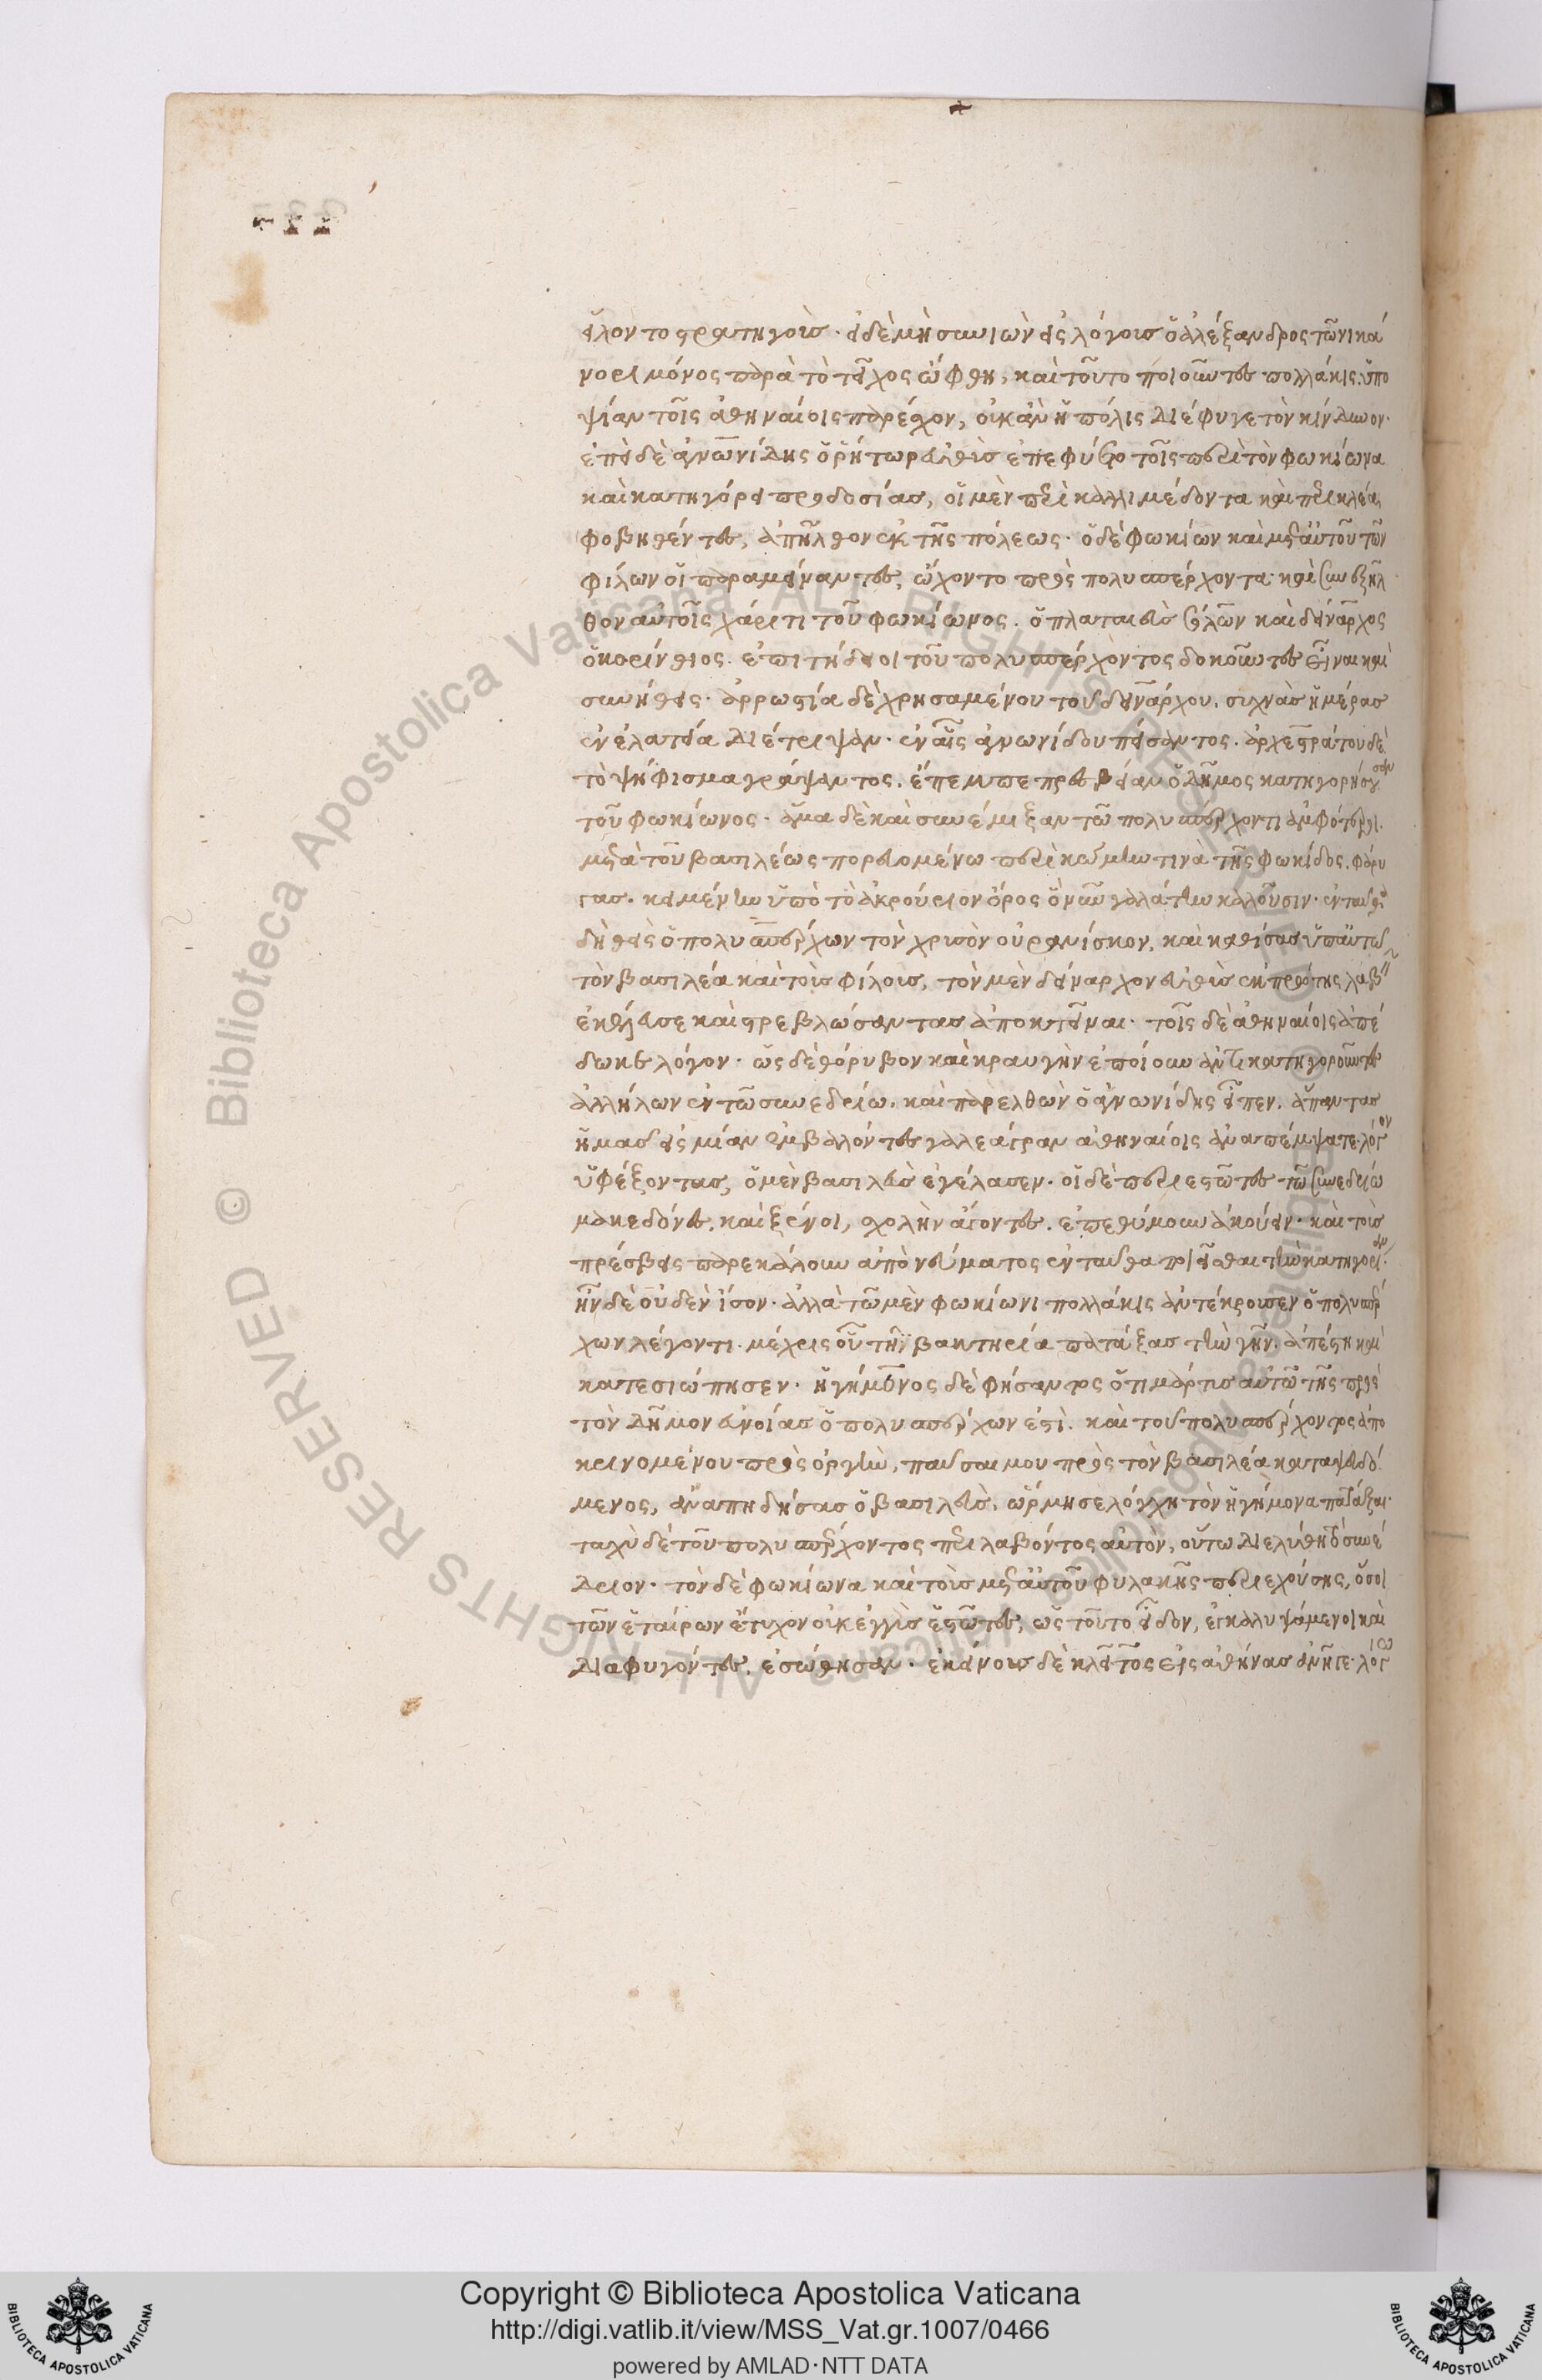 εἵλοντο στρατηγούς. εἰ δὲ μὴ συνιὼν εἰς λόγους ὁ ἀλέξανδρος τῶ νικά
νορι μόνος παρὰ τὸ τεῖχος ὤφθη, καὶ τοῦτο ποιοῦντες πολλάκις ὑπο
ψίαν τοῖς ἀθηναίοις παρέσχον, οὐκ ἂν ἡ πόλις διέφυγε τὸν κίνδυνον.
ἐπεὶ δὲ ἁγνωνίδης ὁ ῥήτωρ εὐθὺς ἐπεφύετο τοῖς περὶ τὸν φωκίωνα
καὶ κατηγόρει προδοσίας, οἱ μὲν περὶ καλλιμέδοντα καὶ περικλέα
φοβηθέντες, ἀπῆλθον ἐκ τῆς πόλεως. ὁ δὲ φωκίων καὶ μετ' αὐτοῦ τῶν
φίλων οἱ παραμείναντες, ὤχοντο πρὸς πολυσπέρχοντα. καὶ συνεξῆλ
θον αὐτοῖς χάριτι τοῦ φωκίωνος. ὁ πλαταιεὺς σόλων καὶ δείναρχος
ὁ κορίνθιος. ἐπιτήδειοι τοῦ πολυσπέρχοντος δοκοῦντες εἶναι καὶ
συνήθεις. ἀρρωστία δὲ χρησαμένου τοῦ δεινάρχου. συχνὰς ἡμέρας
ἐν ἐλατεία διέτριψαν. ἐν αἷς ἁγνωνίδου πείσαντος. ἀρχεστράτου δὲ
τὸ ψήφισμα γράψαντος. ἔπεμπε πρεσβείαν ὁ δῆμος κατηγορήσουσαν
τοῦ φωκίωνος. ἅμα δὲ καὶ συνέμιξαν τῶ πολυσπέρχοντι ἀμφότεροι.
μετὰ τοῦ βασιλέως πορευομένω περὶ κώμην τινὰ τῆς φωκίδος. φάρυ
γας. κειμένην ὑπὸ τὸ ἀκρούριον ὄρος ὃ νῦν γαλάτην καλοῦσιν. ἐνταῦθα
δὴ θεὶς ὁ πολυσπέρχων τὸν χρυσὸν οὐρανίσκον, καὶ καθίσας ὑπ' αὐτῶ
τὸν βασιλέα καὶ τοὺς φίλους, τὸν μὲν δείναρχον εὐθὺς ἐκ πρώτης λαβεῖν
ἐκέλευσε καὶ στρεβλώσαντας ἀποκτεῖναι. τοῖς δὲ ἀθηναίοις ἀπέ
δωκε λόγον. ὡς δὲ θόρυβον καὶ κραυγὴν ἐποίουν ἀντικατηγοροῦντες
ἀλλήλων ἐν τῶ συνεδρίω. καὶ παρελθὼν ὁ ἁγνωνίδης εἶπεν. ἅπαντας
ἡμᾶς εἰς μίαν ἐμβαλόντες γαλεάγραν ἀθηναίοις ἀναπέμψατε λόγον
ὑφέξοντας, ὁ μὲν βασιλεὺς ἐγέλασεν. οἱ δὲ περιεστῶτες τῶ συνεδρίω
μακεδόνες, καὶ ξένοι, σχολὴν ἄγοντες. ἐπεθύμουν ἀκούειν. καὶ τοὺς
πρέσβεις παρεκάλουν ἀπὸ νεύματος ἐνταῦθα ποιεῖσθαι τὴν κατηγορίαν.
ἦν δὲ οὐδὲν ἴσον. ἀλλὰ τῶ μὲν φωκίωνι πολλάκις ἀντέκρουσεν ὁ πολυσπέρ
χων λέγοντι. μέχρις οὗ τῆ βακτηρία πατάξας τὴν γῆν. ἀπέστη καὶ
κατεσιώπησεν. ἡγήμονος δὲ φήσαντος ὅτι μάρτυς αὐτῶ τῆς πρὸς
τὸν δῆμον εὐνοίας ὁ πολυσπέρχων ἐστὶ. καὶ τοῦ πολυσπέρχοντος ἀπο
κρινομένου πρὸς ὀργὴν, παῦσαι μου πρὸς τὸν βασιλέα καταψευδό
μενος, ἀναπηδήσας ὁ βασιλεὺς, ὥρμησε λόγχη τὸν ἡγήμονα πατάξαι.
ταχὺ δὲ τοῦ πολυσπέρχοντος περιλαβόντος αὐτὸν, οὕτω διελύθη τὸ συνέ
δριον. τὸν δὲ φωκίωνα καὶ τοὺς μετ' αὐτοῦ φυλακῆς περιεχούσης, ὅσοι
τῶν ἑταίρων ἔτυχον οὐκ ἐγγὺς ἑστῶτες, ὡς τοῦτο εἶδον, ἐγκαλυψάμενοι καὶ
διαφυγόντες, ἐσώθησαν. ἐκείνους δὲ κλεῖτος εἰς ἀθήνας ἀνῆγε. λόγω
Copyright © Biblioteca Apostolica Vaticana
http://digi.vatlib.it/view/MSS_Vat.gr.1007/0466
powered by AMLAD·NTT DATA